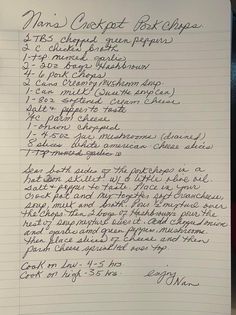 Nan's Crockpot Pork Chops
2 TBS chopped green peppers
2 C chicken broth
1-tsp minced garlic
2 - 30oz bags Hashbrown
4-6 pork chops
2 cans creamy mushroom soup
1-can milk (use the soup can)
1-8oz softened cream cheese
Salt & pepper to taste
c parm cheese
1-onion chopped
1- 4.5oz jar mushrooms (drained)
8 slices white american cheese slices
1 Tsp minced garlic
Sear both sides of the porkchops in a
hot skillet w/ a little olive oil.
Salt & pepper to taste. Place in your
Crock pot and Mix together soft creamcheese,
soup, milk and broth. Pour mixture over
the chops then 2 bags of Hashbrowns pour the
rest of soup mixture over it. Add chopped onion
and garlic and green pepper, mushrooms
then place slices of cheese and then
parm cheese sprinkled over top.
Cook on low - 4-5 hrs
Cook on high - 3.5 hrs.
enjoy
Nan